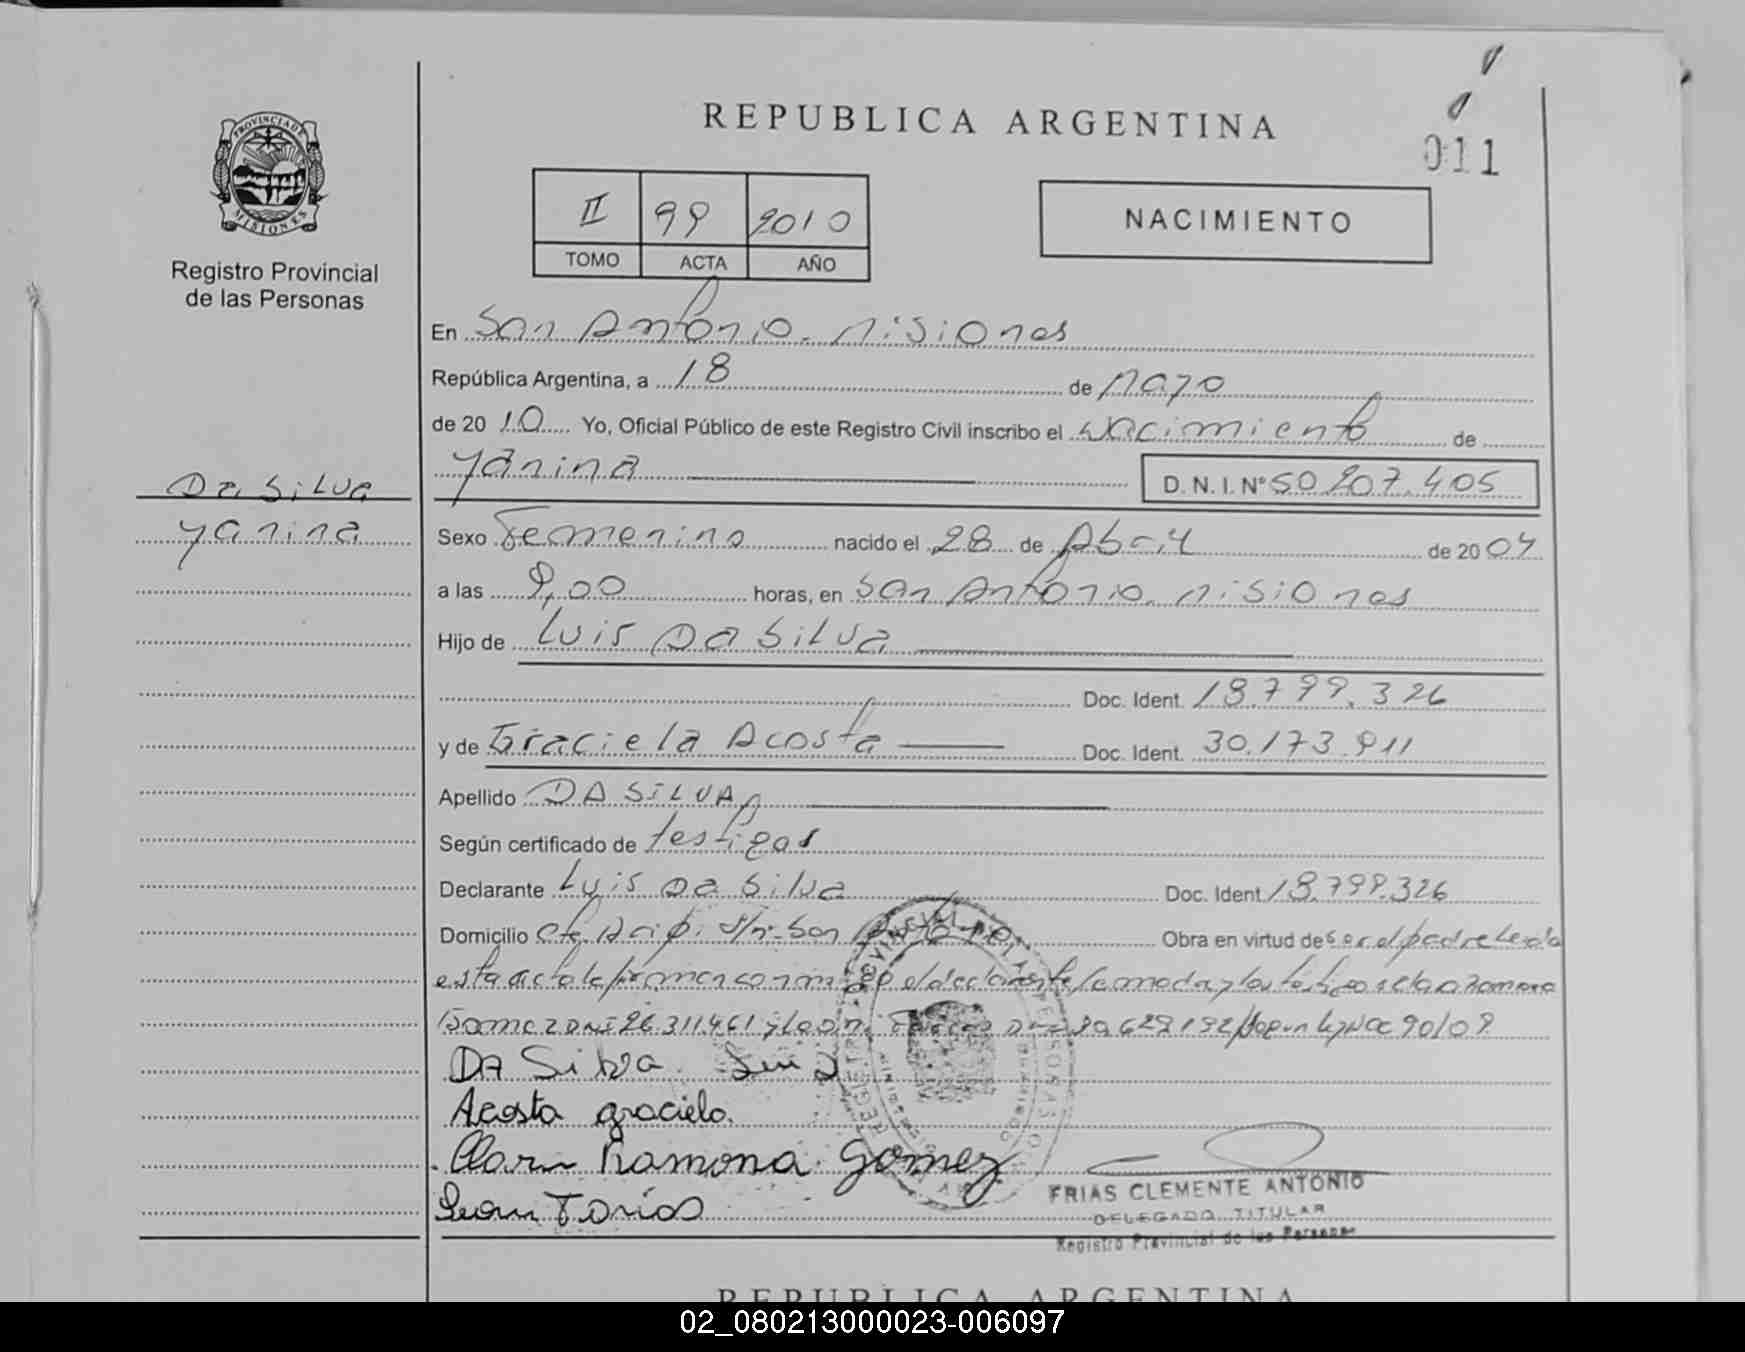 REPUBLICA ARGENTINA
011
PROVINCIA DE MISIONES
Registro Provincial
de las Personas
II 99 2010
TOMO ACTA AÑO
NACIMIENTO
En San Antonio. Misiones
República Argentina, a 18 de Mayo
de 2010 Yo, Oficial Público de este Registro Civil inscribo el Nacimiento de
Yanina D. N. I. N° 50 207.405
Da Silva
Yanina
Sexo Femenino nacido el 28 de Abril de 2004
a las 9,00 horas, en San Antonio. Misiones
Hijo de Luis Da Silva
Doc. Ident. 18.799.326
y de Graciela Acosta Doc. Ident. 30.173.911
Apellido DA SILVA
Según certificado de testigos
Declarante Luis Da Silva Doc. Ident 18.799.326
Domicilio S/n San Antonio Obra en virtud de ser el padre Leida
esta acta la firman conmigo el declarante, la madre y los testigos Ramona
Gomez DNI 26.311.461 y 90/09
Da Silva Luis
Acosta graciela.
Clara Ramona Gomez
FRIAS CLEMENTE ANTONIO
DELEGADO TITULAR
Registro Provincial de las Personas
REPUBLICA ARGENTINA
02_080213000023-006097